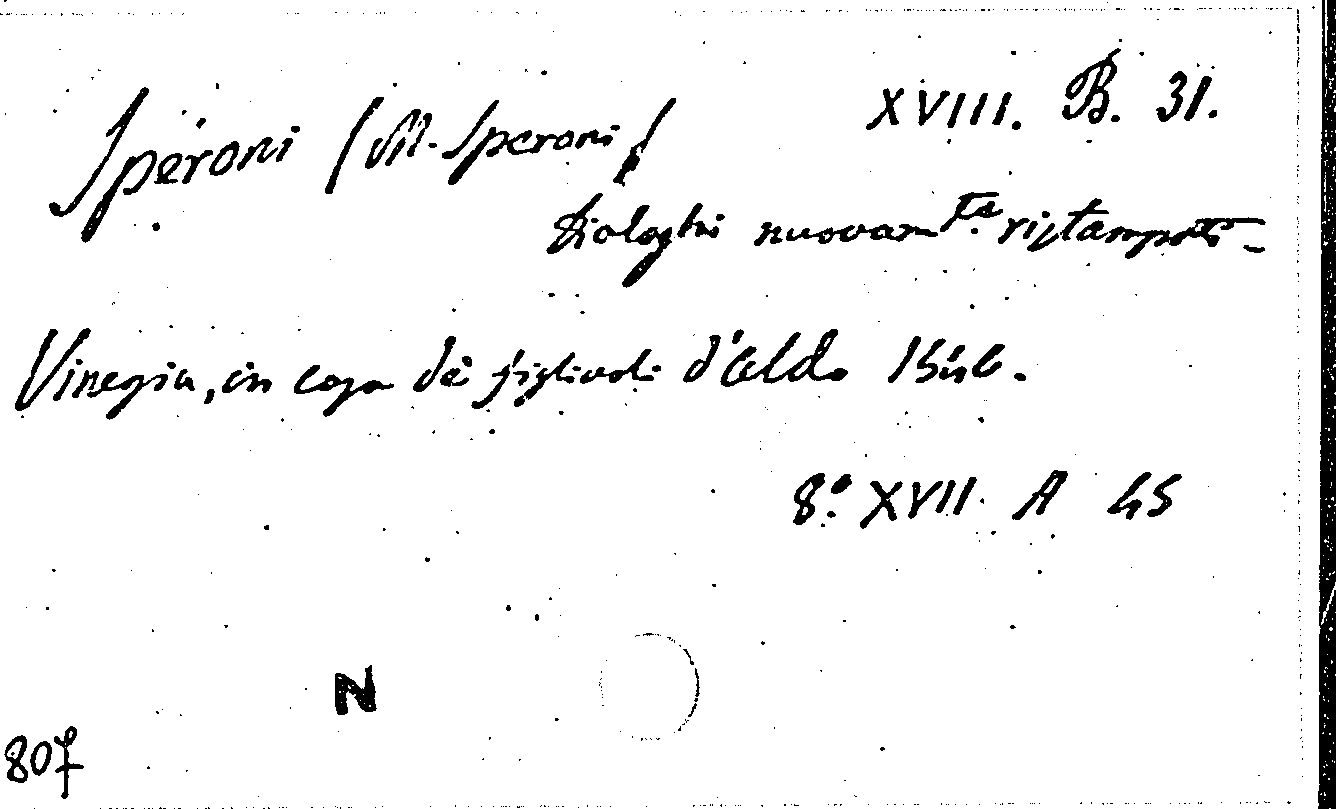 XVIII. B. 31.
Speroni (M. Speroni)
Dialoghi nuovamte. ristampati -
Vinegia, in casa de' figliuoli d'Aldo 1546.
8.o XVII. A 45
N
807